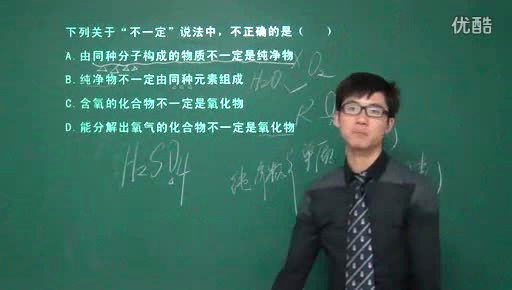 优酷
下列关于“不一定”说法中，不正确的是（ ）
A.由同种分子构成的物质不一定是纯净物
B.纯净物不一定由同种元素组成
C.含氧的化合物不一定是氧化物
D.能分解出氧气的化合物不一定是氧化物
H₂O O₂
H₂SO₄